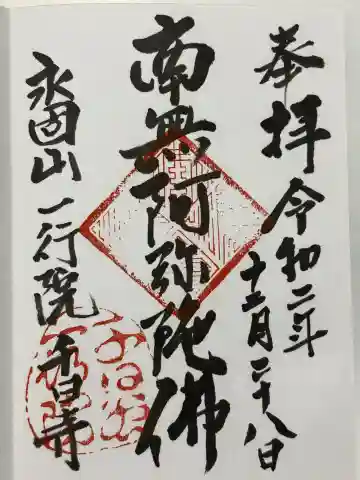 奉拝 令和二年
十二月二十八日
南無阿弥陀佛
永固山 一行院 千日寺